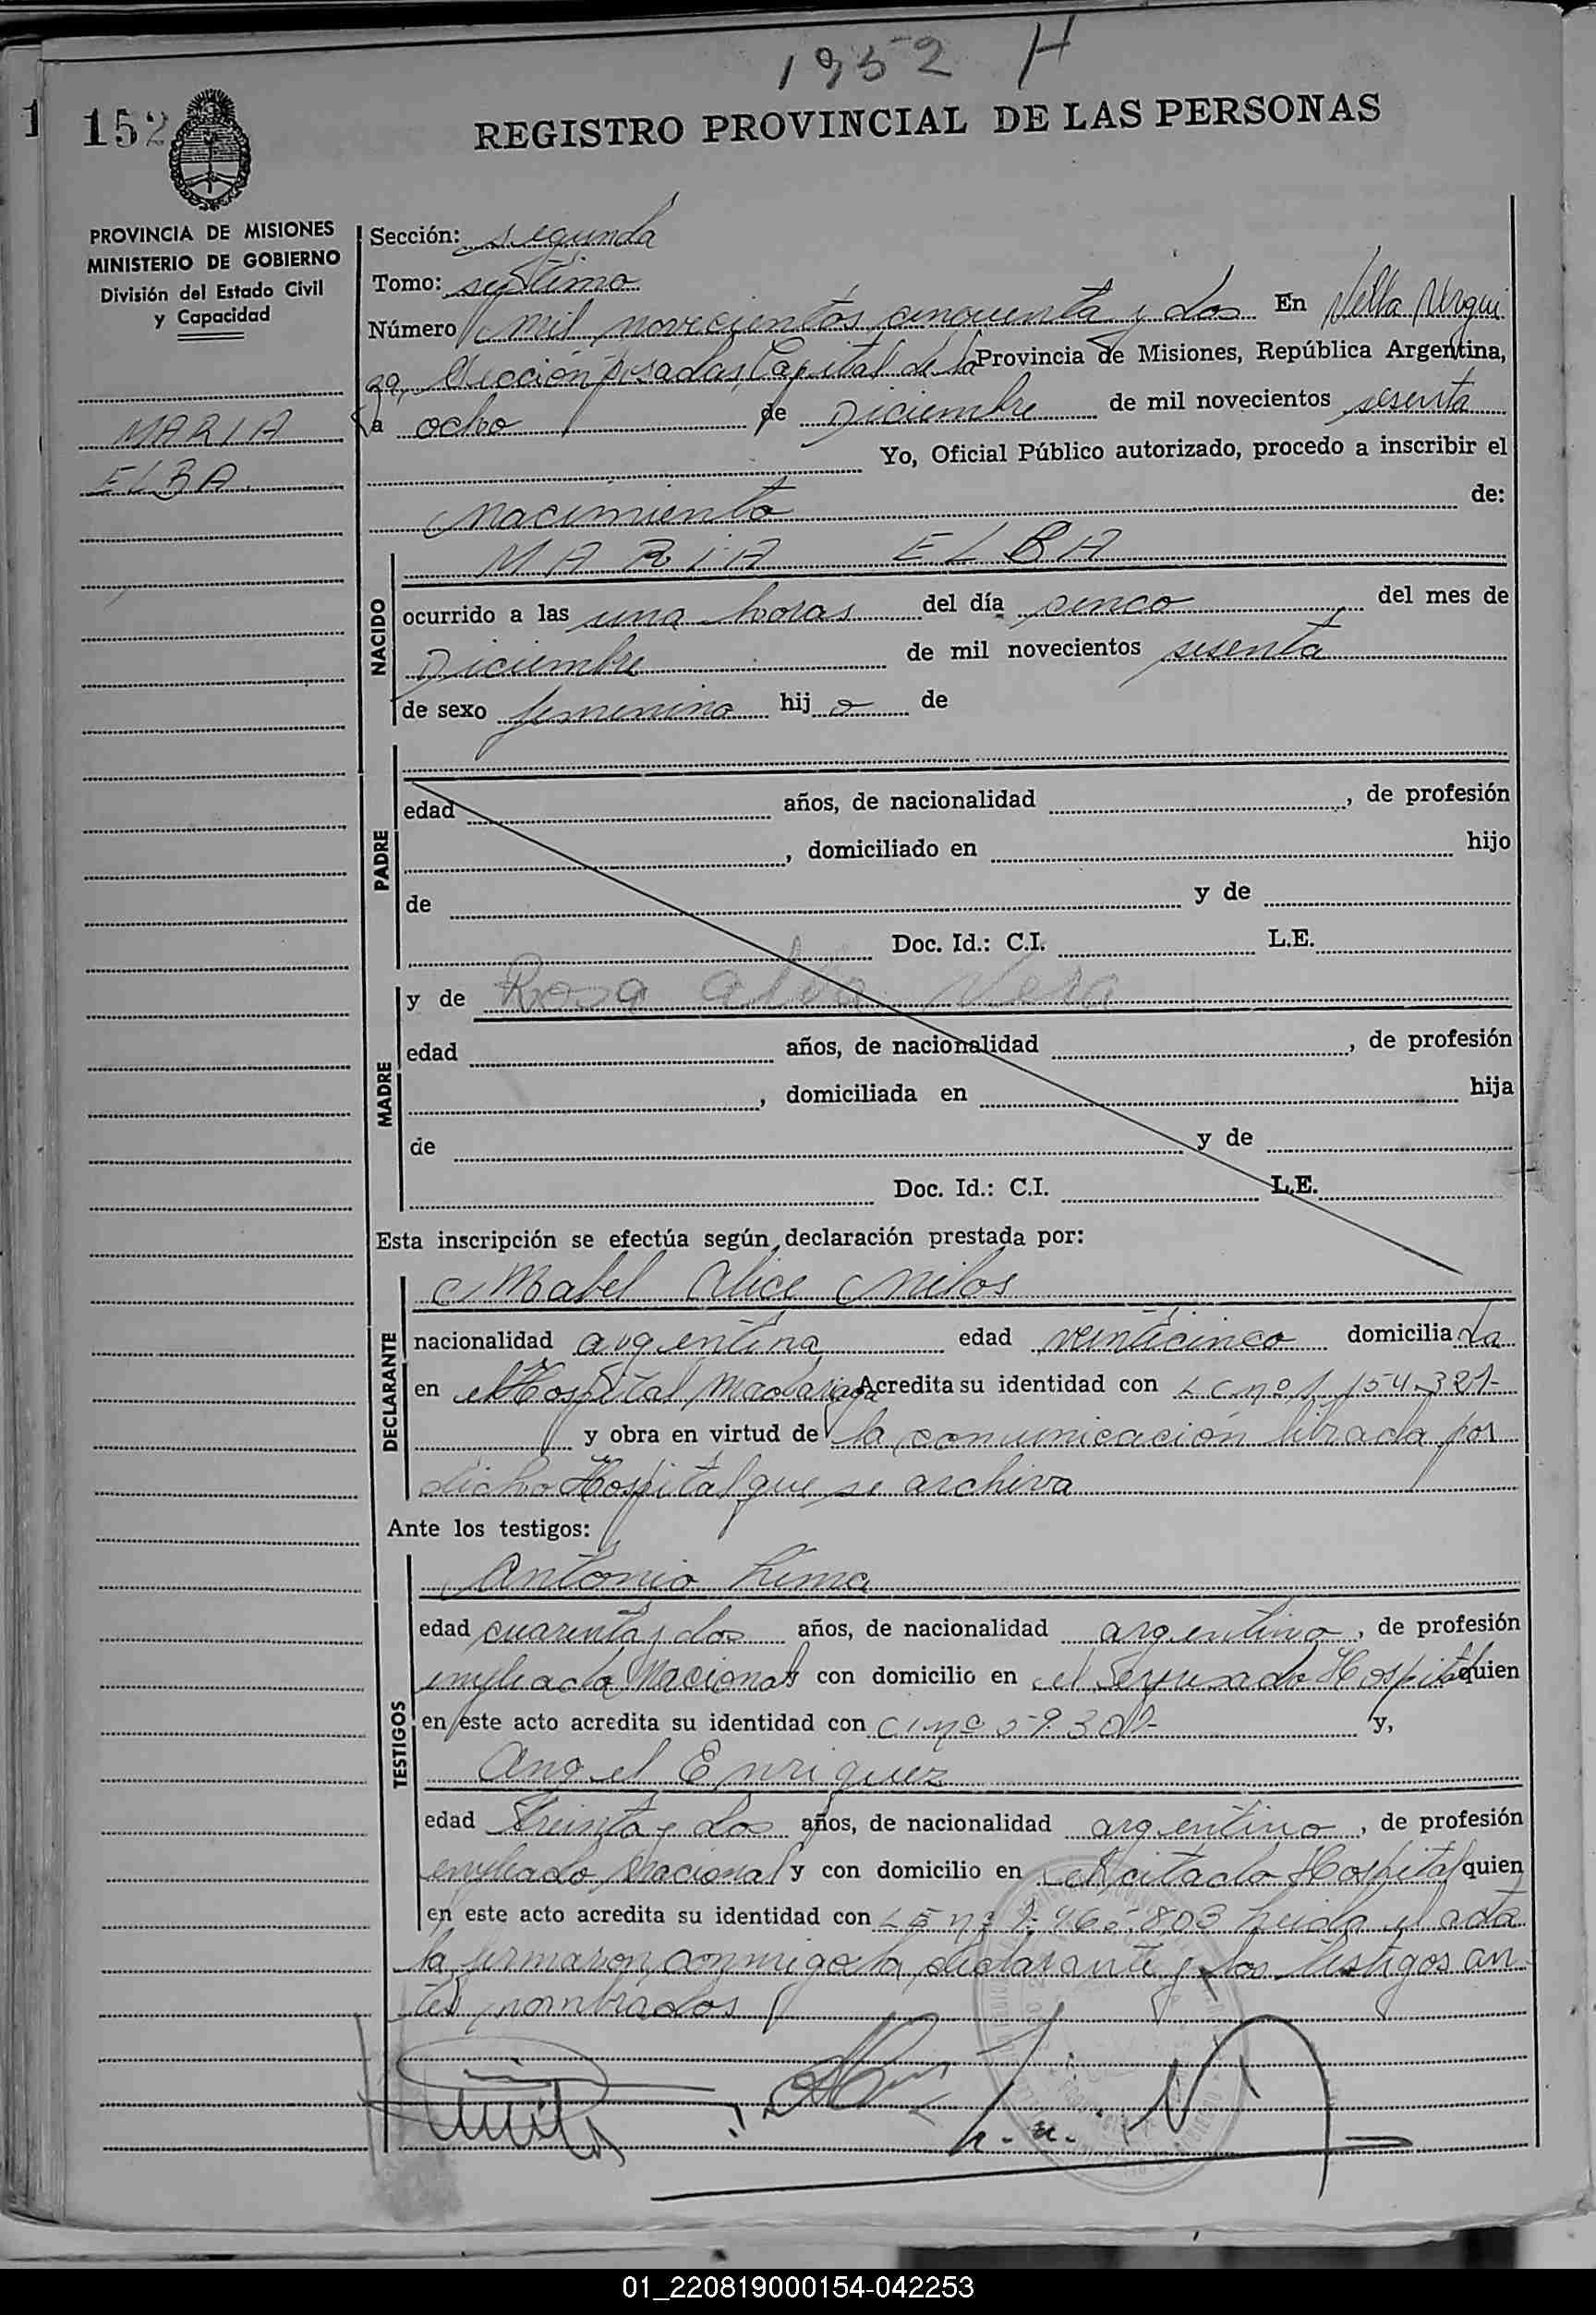 1952 H
1
152
REGISTRO PROVINCIAL DE LAS PERSONAS
PROVINCIA DE MISIONES
MINISTERIO DE GOBIERNO
División del Estado Civil
y Capacidad
MARIA
ELBA.
Sección: segunda
Tomo: septimo
Número mil novecientos cincuenta y dos En Villa Urqui
za, Sección posadas, Capital de la Provincia de Misiones, República Argentina,
a ocho de Diciembre de mil novecientos sesenta
Yo, Oficial Público autorizado, procedo a inscribir el
Nacimiento de:
NACIDO
MARIA ELBA
ocurrido a las una horas del día cinco del mes de
Diciembre de mil novecientos sesenta
de sexo femenino hij a de
PADRE
edad años, de nacionalidad , de profesión
, domiciliado en hijo
de y de
Doc. Id.: C.I. L.E.
MADRE
y de Rosa Vera
edad años, de nacionalidad , de profesión
, domiciliada en hija
de y de
Doc. Id.: C.I. L.E.
Esta inscripción se efectúa según declaración prestada por:
DECLARANTE
Mabel Alice Milos
nacionalidad argentina edad veinticinco domicilia da
en el Hospital Madariaga Acredita su identidad con L C nº 1.154.321-
y obra en virtud de la comunicación librada por
dicho Hospital que se archiva
Ante los testigos:
TESTIGOS
Antonio Lima
edad cuarenta y dos años, de nacionalidad argentino, de profesión
empleado Nacional y con domicilio en el Hospital quien
en este acto acredita su identidad con C I nº 59.301- y,
Angel Enriquez
edad treinta y dos años, de nacionalidad argentino, de profesión
empleado Nacional y con domicilio en el citado Hospital quien
en este acto acredita su identidad con L E nº 1.465.803 Leida el acta
la firmaron conmigo la declarante y los testigos an
tes nombrados
01_220819000154-042253